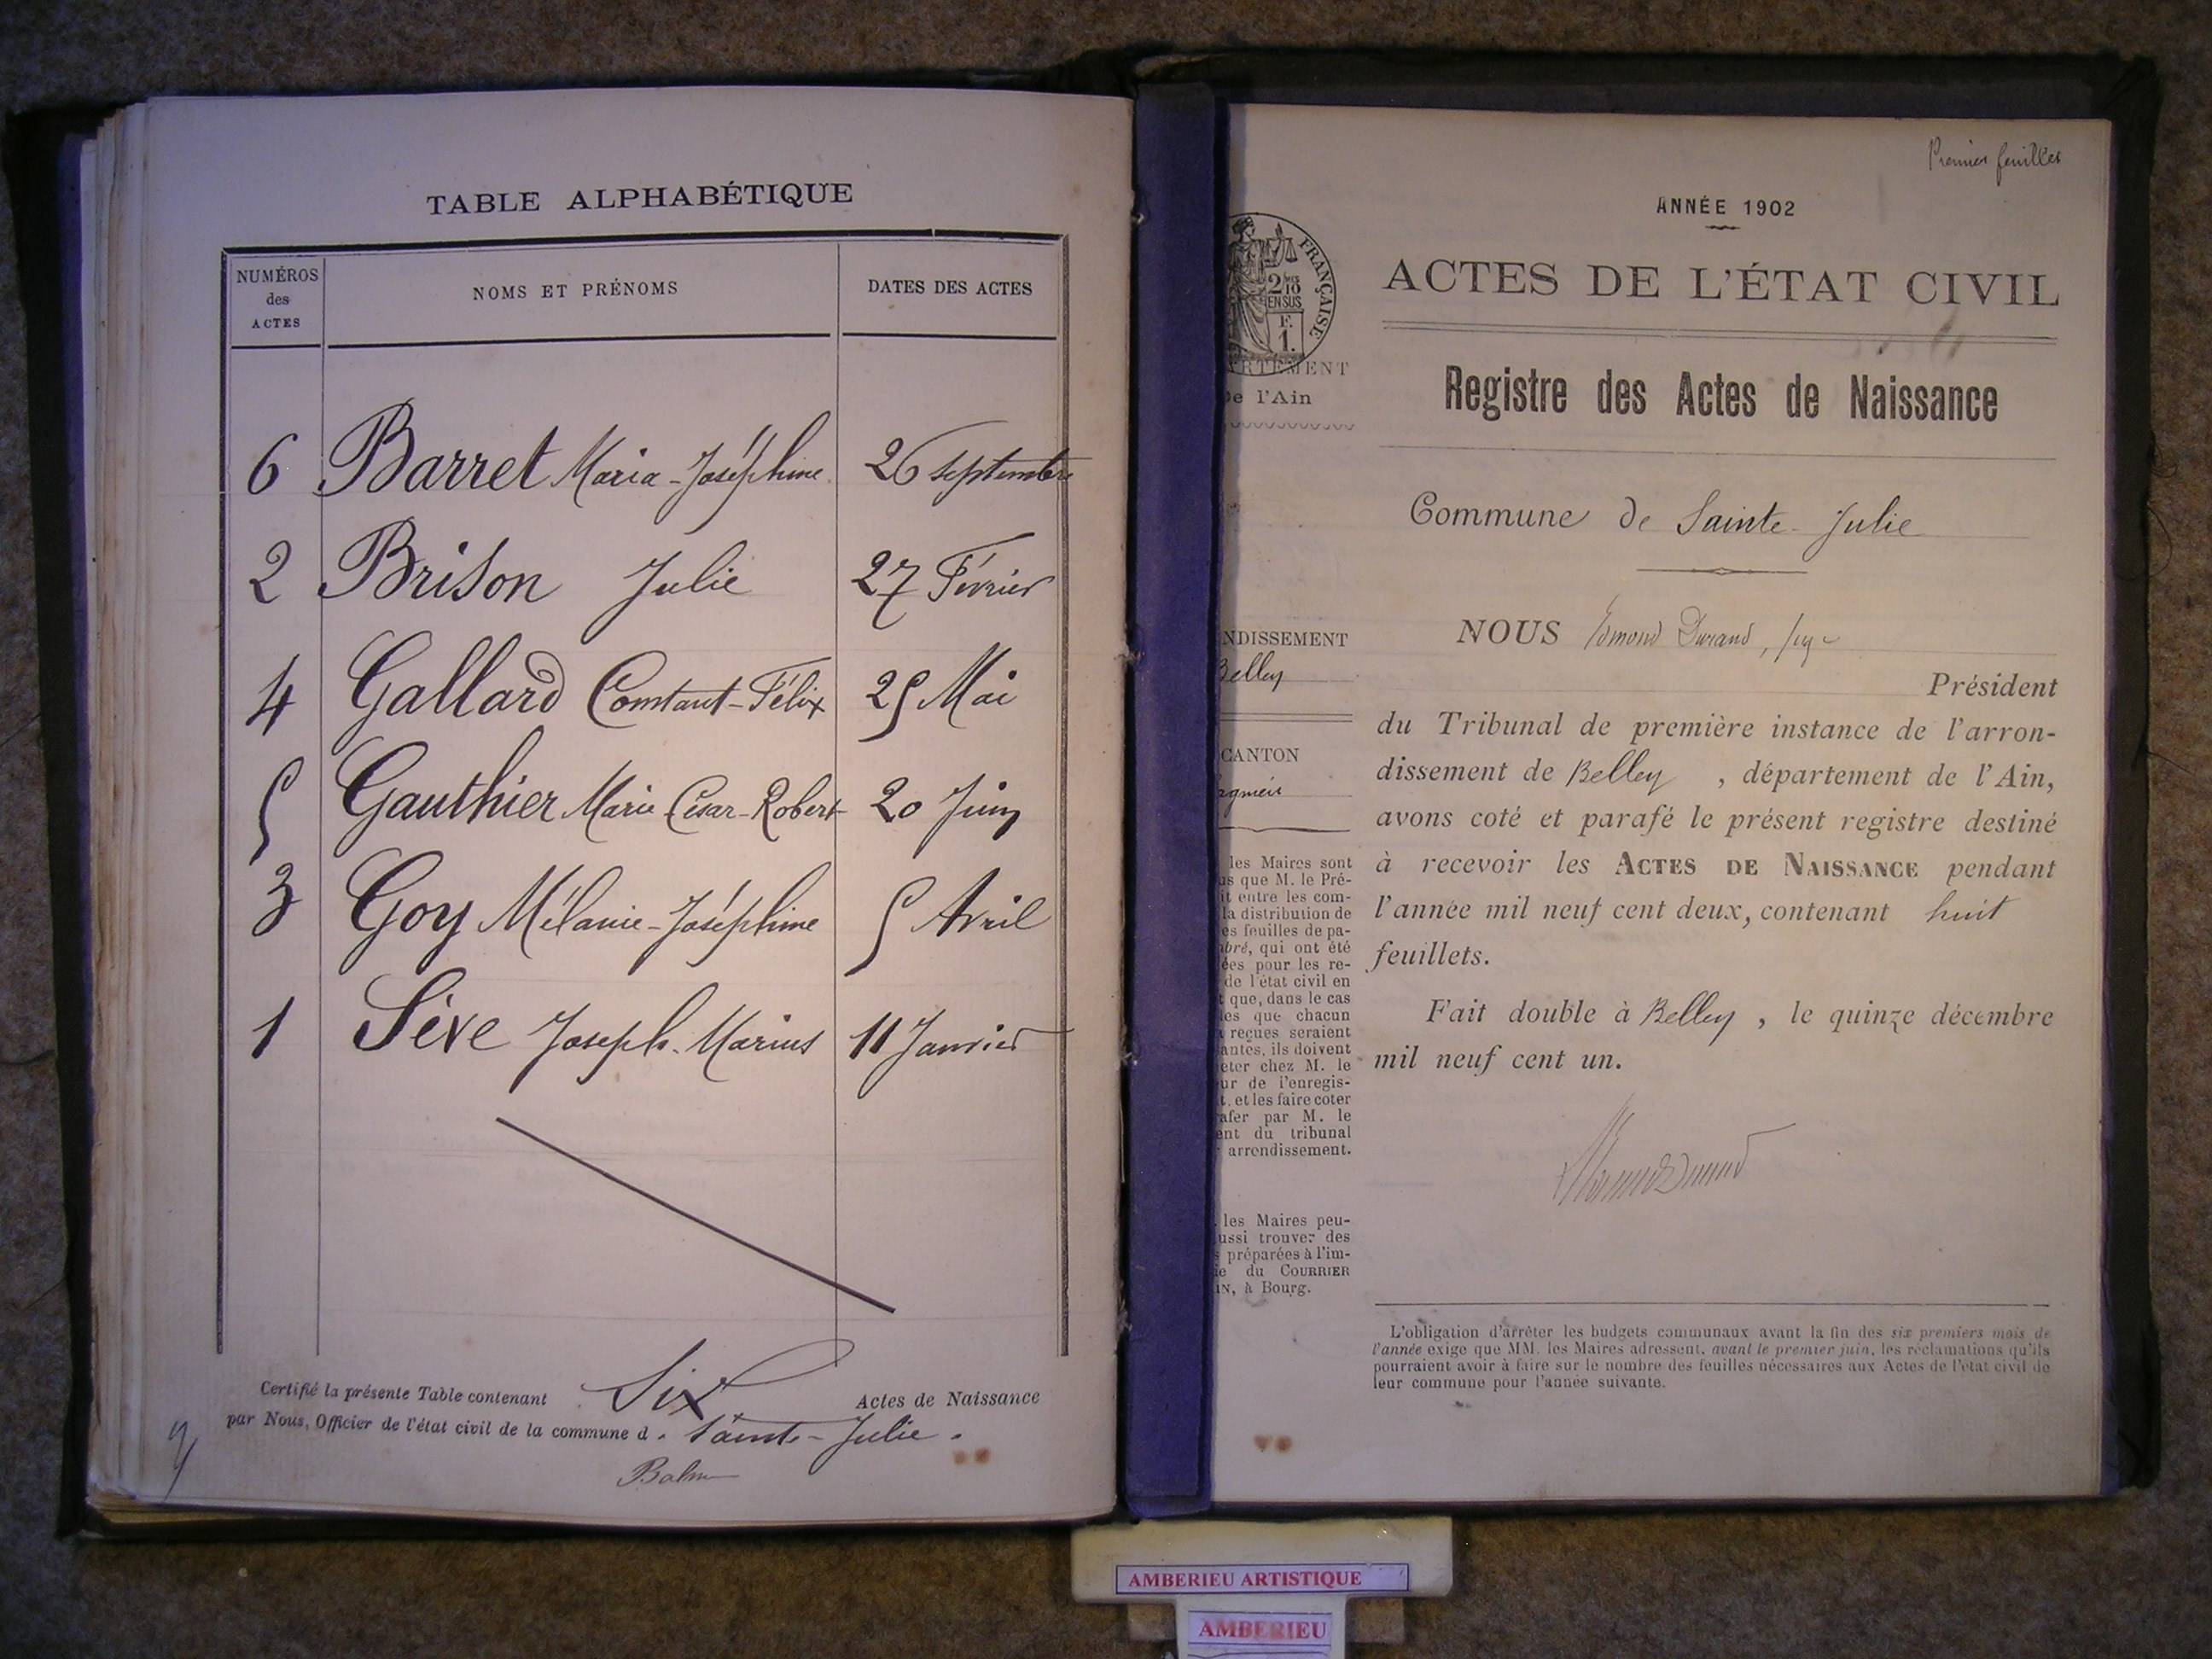 TABLE ALPHABÉTIQUE
NUMÉROS
des
ACTES
NOMS ET PRÉNOMS
DATES DES ACTES
6 Barret Maria-Joséphine 26 septembre
2 Brison Julie 27 Février
4 Gallard Constant-Félix 25 Mai
5 Gauthier Marie César-Robert 20 Juin
3 Goy Mélanie-Joséphine 5 Avril
1 Sève Joseph-Marius 11 Janvier
Certifié la présente Table contenant Six Actes de Naissance
par Nous, Officier de l'état civil de la commune d. Sainte-Julie.
Premier feuillet
ANNÉE 1902
ACTES DE L'ÉTAT CIVIL
Registre des Actes de Naissance
Commune de Sainte-Julie
NOUS Edmond Durand, juge
Président
du Tribunal de première instance de l'arron-
dissement de Belley, département de l'Ain,
avons coté et parafé le présent registre destiné
à recevoir les ACTES DE NAISSANCE pendant
l'année mil neuf cent deux, contenant huit
feuillets.
Fait double à Belley, le quinze décembre
mil neuf cent un.
L'obligation d'arrêter les budgets communaux avant la fin des six premiers mois de
l'année exige que MM. les Maires adressent, avant le premier juin, les réclamations qu'ils
pourraient avoir à faire sur le nombre des feuilles nécessaires aux Actes de l'état civil de
leur commune pour l'année suivante.
FRANÇAISE
2/10
EN SUS
F.
1.
RTEMENT
De l'Ain
NDISSEMENT
Belley
CANTON
les Maires sont
us que M. le Pré-
it entre les com-
la distribution de
es feuilles de pa-
bré, qui ont été
ées pour les re-
de l'état civil en
t que, dans le cas
les que chacun
reçues seraient
antes, ils doivent
eter chez M. le
ur de l'enregis-
t, et les faire coter
afer par M. le
ent du tribunal
arrondissement.
les Maires peu-
ussi trouver des
s préparées à l'im-
ie du COURRIER
IN, à Bourg.
AMBERIEU ARTISTIQUE
AMBERIEU